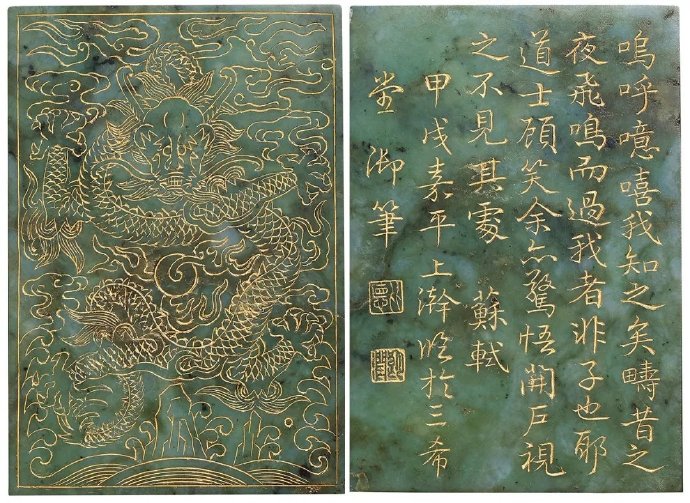 嗚呼噫嘻我知之矣疇昔之
夜飛鳴而過我者非子也耶
道士顧笑余亦驚悟開戶視
之不見其處 蘇軾
甲戌嘉平上澣臨於三希
堂御筆